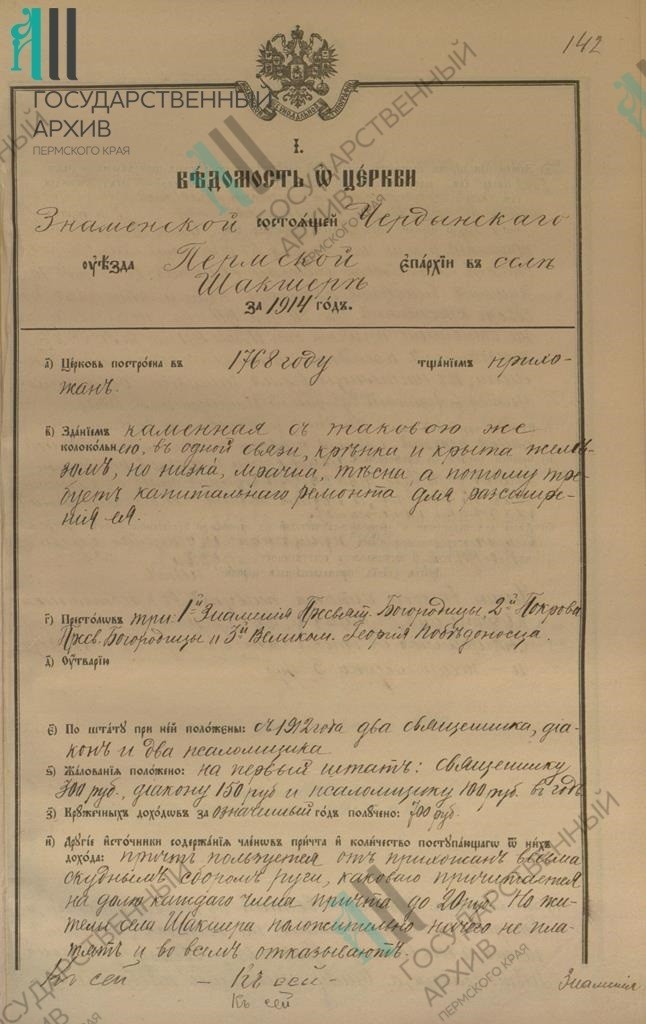 142
ГОСУДАРСТВЕННЫЙ
АРХИВ
ПЕРМСКОГО КРАЯ
І.
Вѣдомость ѿ церкви
Знаменской состоѧщей Чердынскаго
оуѣзда Пермской єпархіи въ селѣ
Шакшерѣ
за 1914 годъ.
а) Церковь построена въ 1768 году тщаніемъ прихо-
жанъ.
в) Зданіемъ каменная съ таковою же
колокольнею, въ одной связи, крѣпка и крыта желѣ-
зомъ, но низка, мрачна, тѣсна, а потому тре-
буетъ капитальнаго ремонта для расшире-
нія ея.
г) Престоловъ три: 1й Знаменія Пресвят. Богородицы, 2й Покрова
Пресв. Богородицы и 3й Великом. Георгія Побѣдоносца.
д) Оутварію
є) По штатꙋ при ней положены: съ 1912 года два священника, діа-
конъ и два псаломщика
ѕ) Жалованія положено: на первый штатъ: священнику
300 руб., діакону 150 руб и псаломщику 100 руб. въ годъ
з) Крꙋжечныхъ доходовъ за означенный годъ получено: 700 руб.
и) Дрꙋгіе источники содержаніѧ членовъ причта и количество постꙋпающагѡ ѿ нихъ
дохода: причтъ пользуется отъ прихожанъ весьма
скуднымъ сборомъ руги, каковаго причитается
на долю каждаго члена причта до 20 руб. Но жи-
тели села Шакшера положительно ничего не пла-
тятъ и во всемъ отказываютъ.
Къ сей – Къ сей – Знаменія
Къ сей